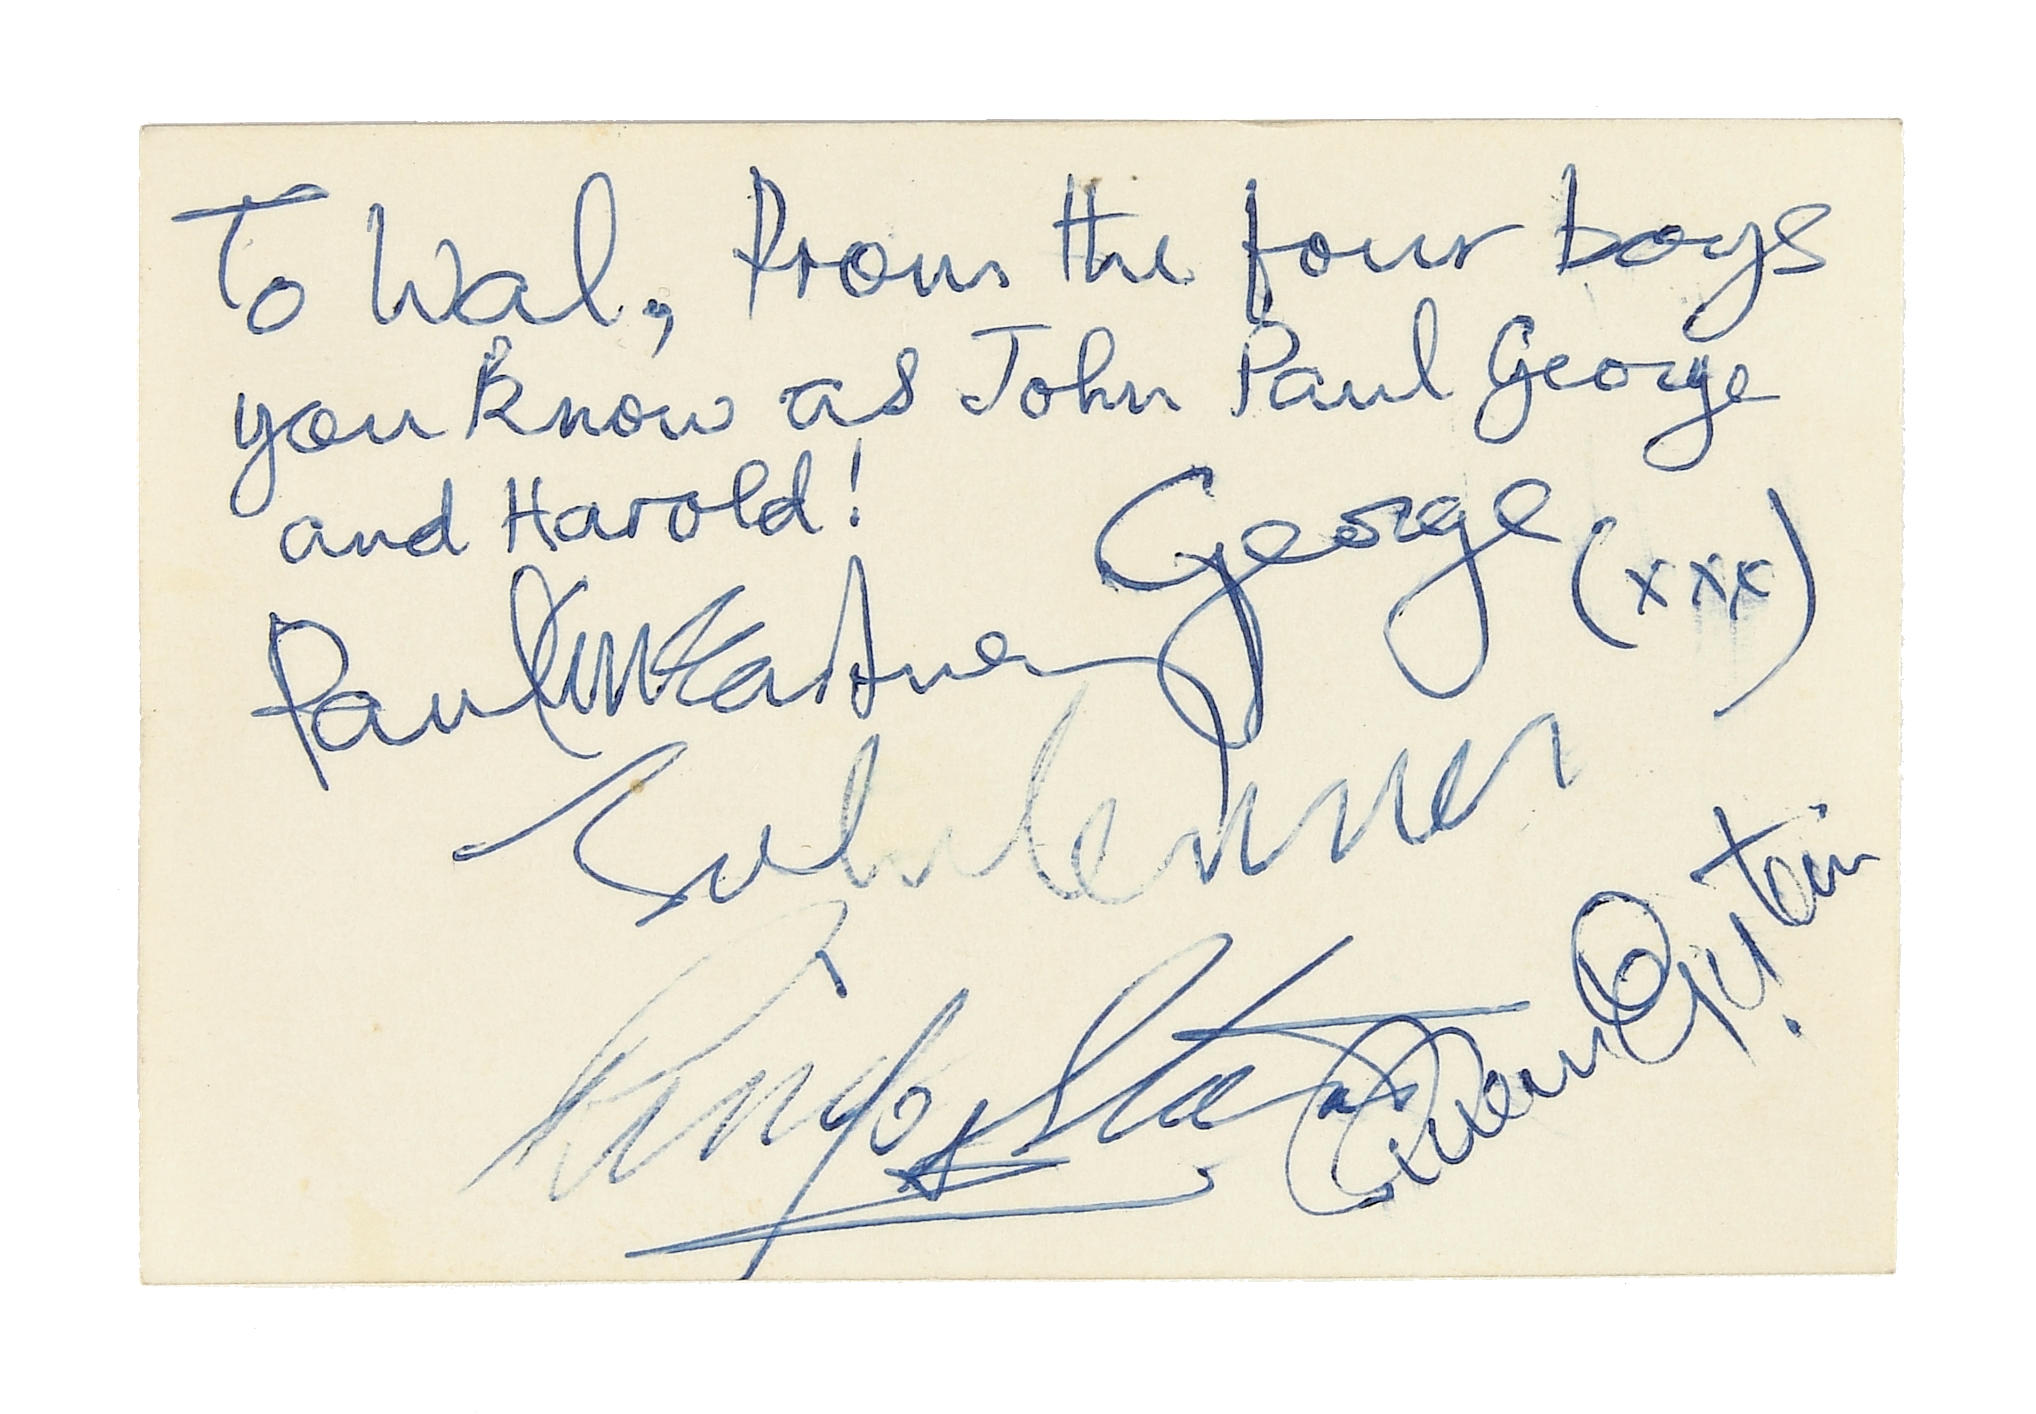 To Wal, From the four boys
you know as John Paul George
and Harold!
George (xxx)
Paul McCartney
John Lennon
Ringo Starr
Brian Epstein